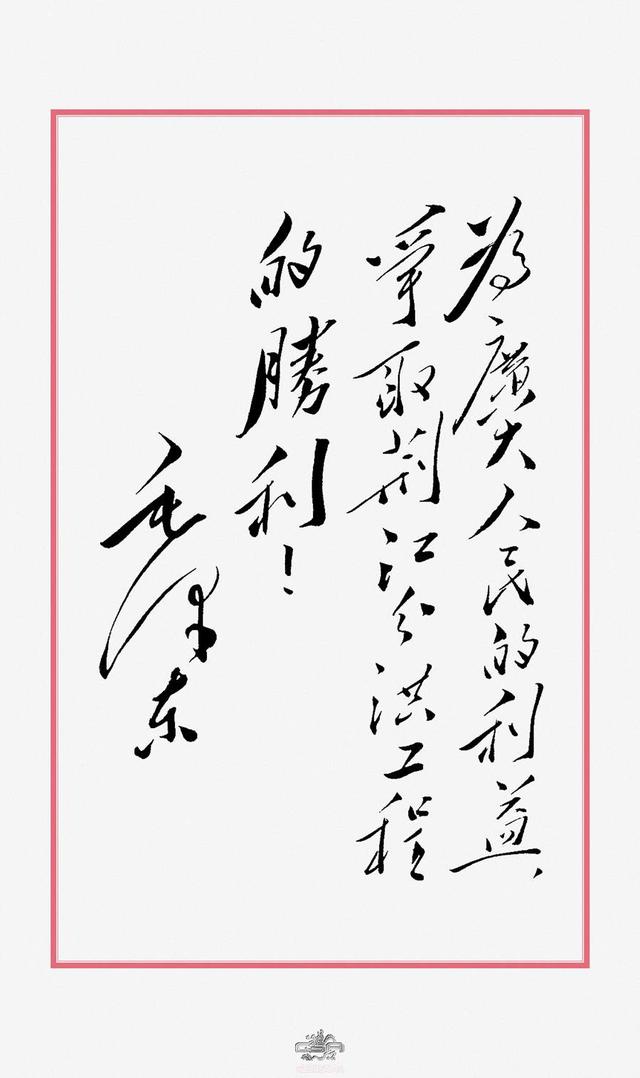 為廣大人民的利益
爭取荆江分洪工程
的勝利！
毛泽东